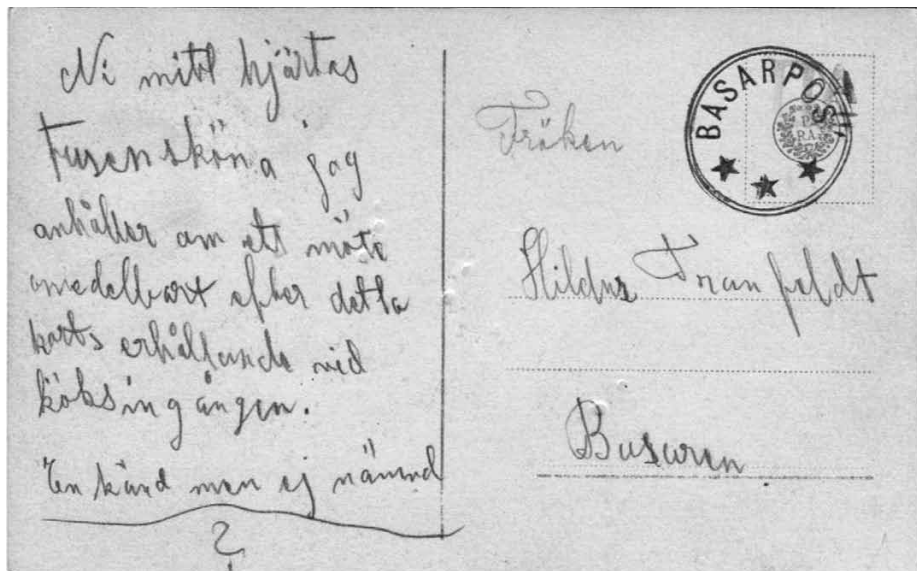 Ni mitt hjärtas
Tusensköna jag
anhåller om ett möte
omedelbart efter detta
korts erhållande vid
köksingången.
En känd men ej nämnd
?
BASARPOST
Fröken
Hildur Tranfeldt
Basaren